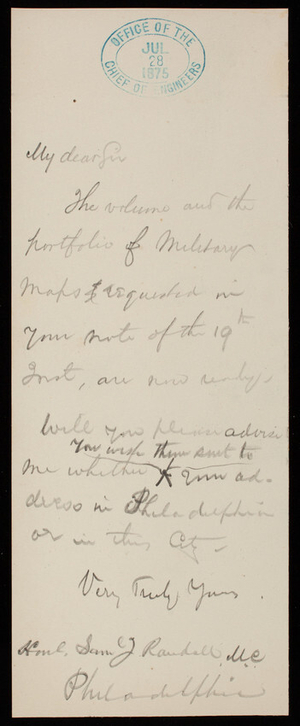 OFFICE OF THE
JUL
28
1875
CHIEF OF ENGINEERS
My dear Sir
The volume and the
portfolio of Military
Maps requested in
your note of the 19th
Inst, are now ready.
Will you please advise
you wish them sent to
me whether your ad-
dress in Philadelphia
or in this City.
Very Truly Yours
Honl. Saml J Randall, M.C.
Philadelphia